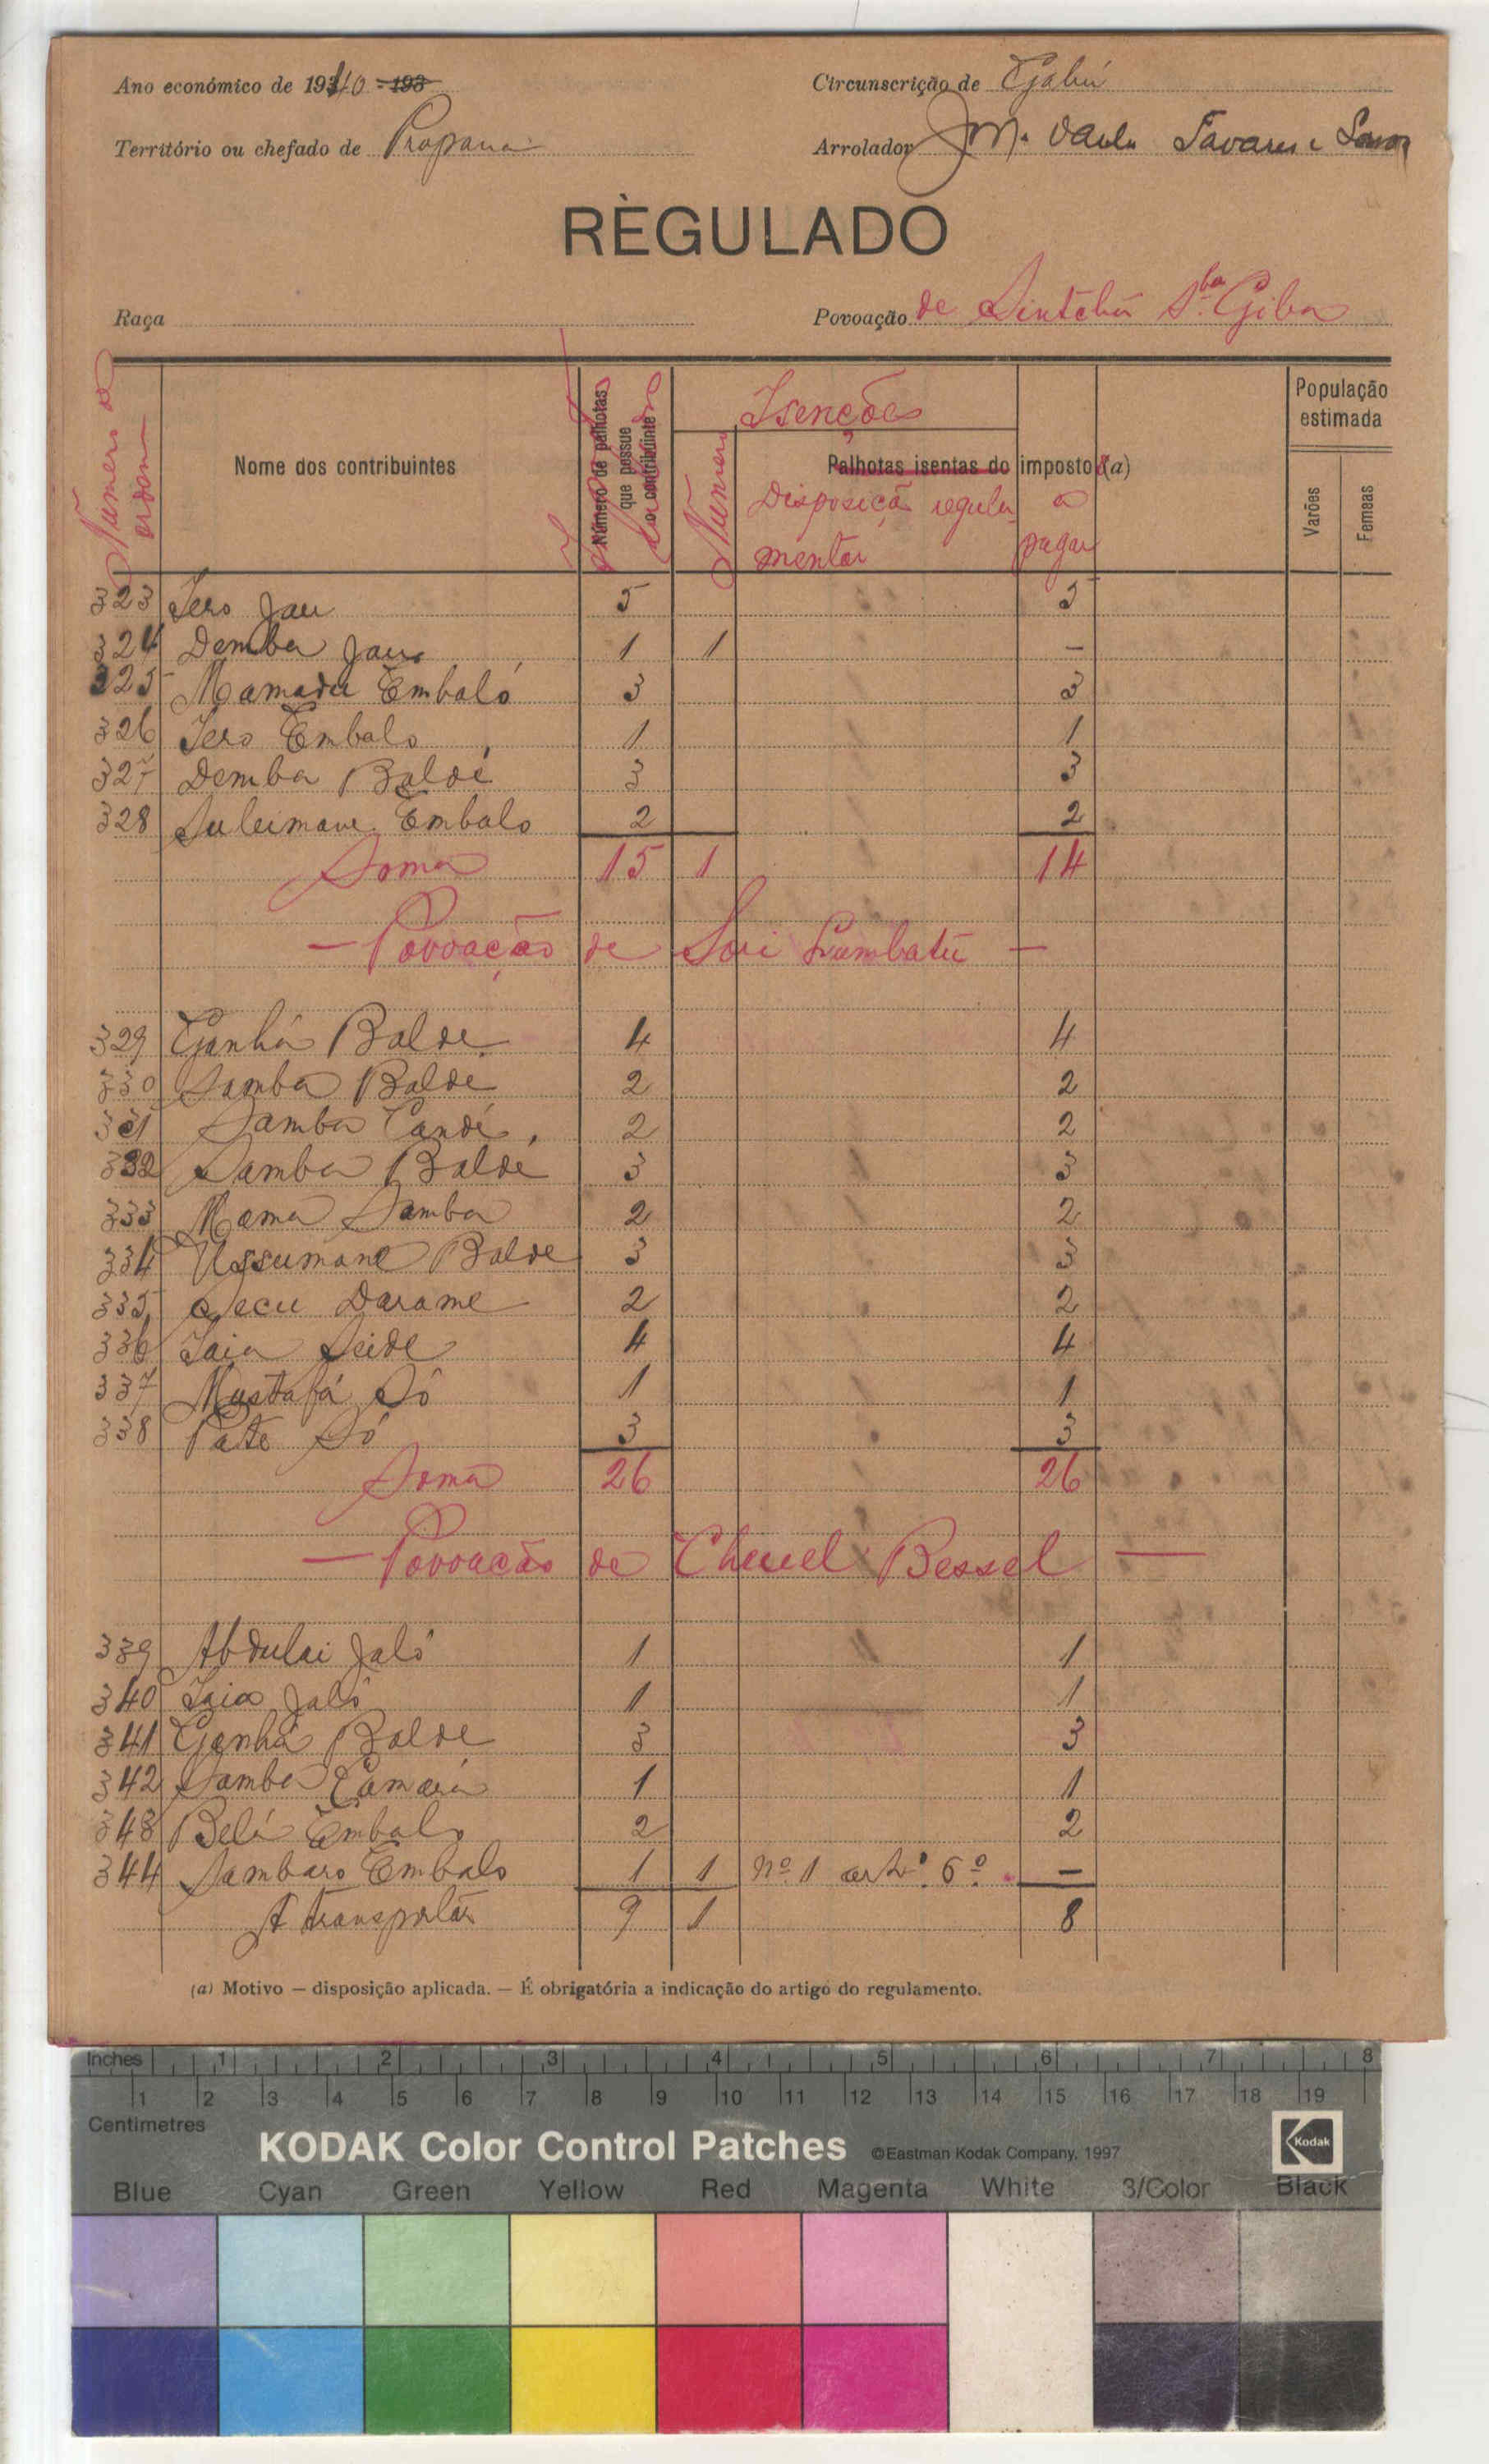 Ano económico de 1940 - 193
Circunscrição de Gabú
Território ou chefado de Propana
Arrolador J M. Paula Tavares e Sousa
RÈGULADO
Raça
Povoação de Sintchã S.ba Giba
Numero de ordem
Nome dos contribuintes
Número de palhotas que possue o contribuinte
Isenções
Numero
Palhotas isentas do imposto (a)
Disposição regula
mentar
a pagar
População estimada
Varões
Femeas
323 Iero Jau 5 5
324 Demba Jau 1 1 —
325 Mamadu Embaló 3 3
326 Iero Embalo 1 1
327 Demba Baldé 3 3
328 Suleimane Embalo 2 2
Soma 15 1 14
— Povoação de Sori Lumbatú —
329 Ganhá Balde 4 4
330 Samba Baldé 2 2
331 Samba Candé, 2 2
332 Samba Baldé 3 3
333 Mama Samba 2 2
334 Ussumane Balde 3 3
335 Secu Darame 2 2
336 Iaia Seide 4 4
337 Mustafá Só 1 1
338 Pate Só 3 3
Soma 26 26
— Povoação de Chuel Bessel —
339 Abdulai Jaló 1 1
340 Iaia Jaló 1 1
341 Ganhá Balde 3 3
342 Samba Camará 1 1
343 Belá Embalo 2 2
344 Sambaro Embalo 1 1 nº 1 artº. 6º. —
A transportar 9 1 8
(a) Motivo — disposição aplicada. — É obrigatória a indicação do artigo do regulamento.
Inches 1 2 3 4 5 6 7 8
1 2 3 4 5 6 7 8 9 10 11 12 13 14 15 16 17 18 19
Centimetres
KODAK Color Control Patches ©Eastman Kodak Company, 1997 Kodak
Blue Cyan Green Yellow Red Magenta White 3/Color Black